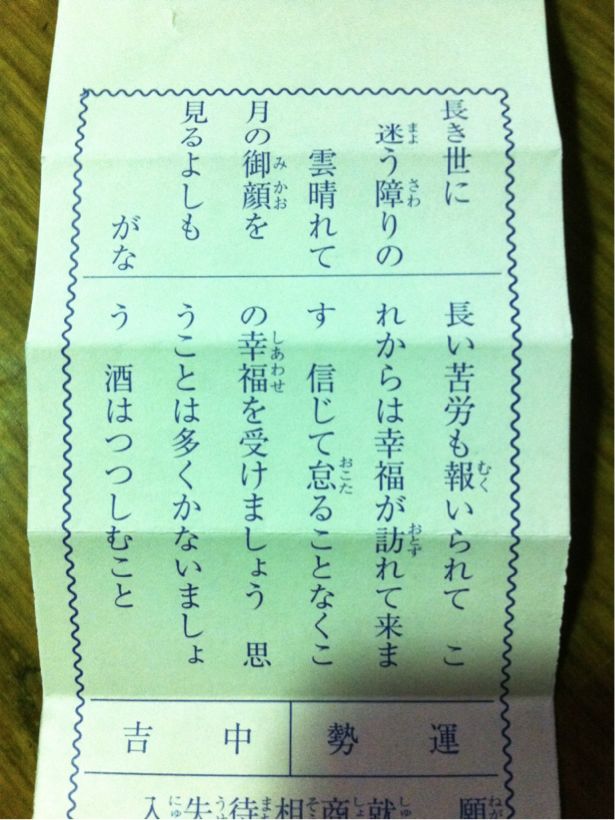 長き世に
迷う障りの
雲晴れて
月の御顔を
見るよしも
がな
長い苦労も報いられて こ
れからは幸福が訪れて来ま
す 信じて怠ることなくこ
の幸福を受けましょう 思
うことは多くかないましょ
う 酒はつつしむこと
運勢
中吉
願
就
商
相
待
失
入